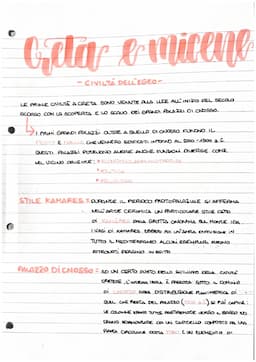 Creta e micene
- CIVILTÀ DELL'EGEO -
LE PRIME CIVILTÀ A CRETA SONO VENUTE ALLA LUCE ALL'INIZIO DEL SECOLO
SCORSO CON LA SCOPERTA E LO SCAVO DEI GRANDI PALAZZI DI CNOSSO.
I PRIMI GRANDI PALAZZI OLTRE A QUELLO DI CNOSSO FURONO IL
FESTO E CHE VENNERO EDIFICATI INTORNO AL
QUESTI PALAZZI POSSIEDONO ANCHE FUNZIONI DIVERSE COME
NEL VICINO ORIENTE:
• POLITICA
• RELIGIOSA
STILE KAMARES: DURANTE IL PERIODO PROTOPALAZIALE SI AFFERMA
NELL'ARTE CERAMICA UN PARTICOLARE STILE DETTO
DI KAMARES DALLA GROTTA OMONIMA SUL MONTE IDA.
I VASI DI KAMARES EBBERO UN'AMPIA DIFFUSIONE IN
TUTTO IL MEDITERRANEO ALCUNI ESEMPLARI FURONO
RITROVATI PERSINO IN EGITTO
PALAZZO DI CNOSSO: AD UN CERTO PUNTO DELLO SVILUPPO DELLA CIVILTÀ
CRETESE, L'INTERA ISOLA È PASSATA SOTTO IL DOMINIO
DI CNOSSO. DALLA DISTRIBUZIONE PLANIMETRICA DI
QUEL CHE RESTA DEL PALAZZO SI PUÒ CAPIRE:
LE COLONNE RASTREMATE VERSO IL BASSO ED
ERANO SORMONTATE DA UN CAPITELLO COMPOSTO DA UNA
PARTE CIRCOLARE DETTA TORO E UN ELEMENTO DI